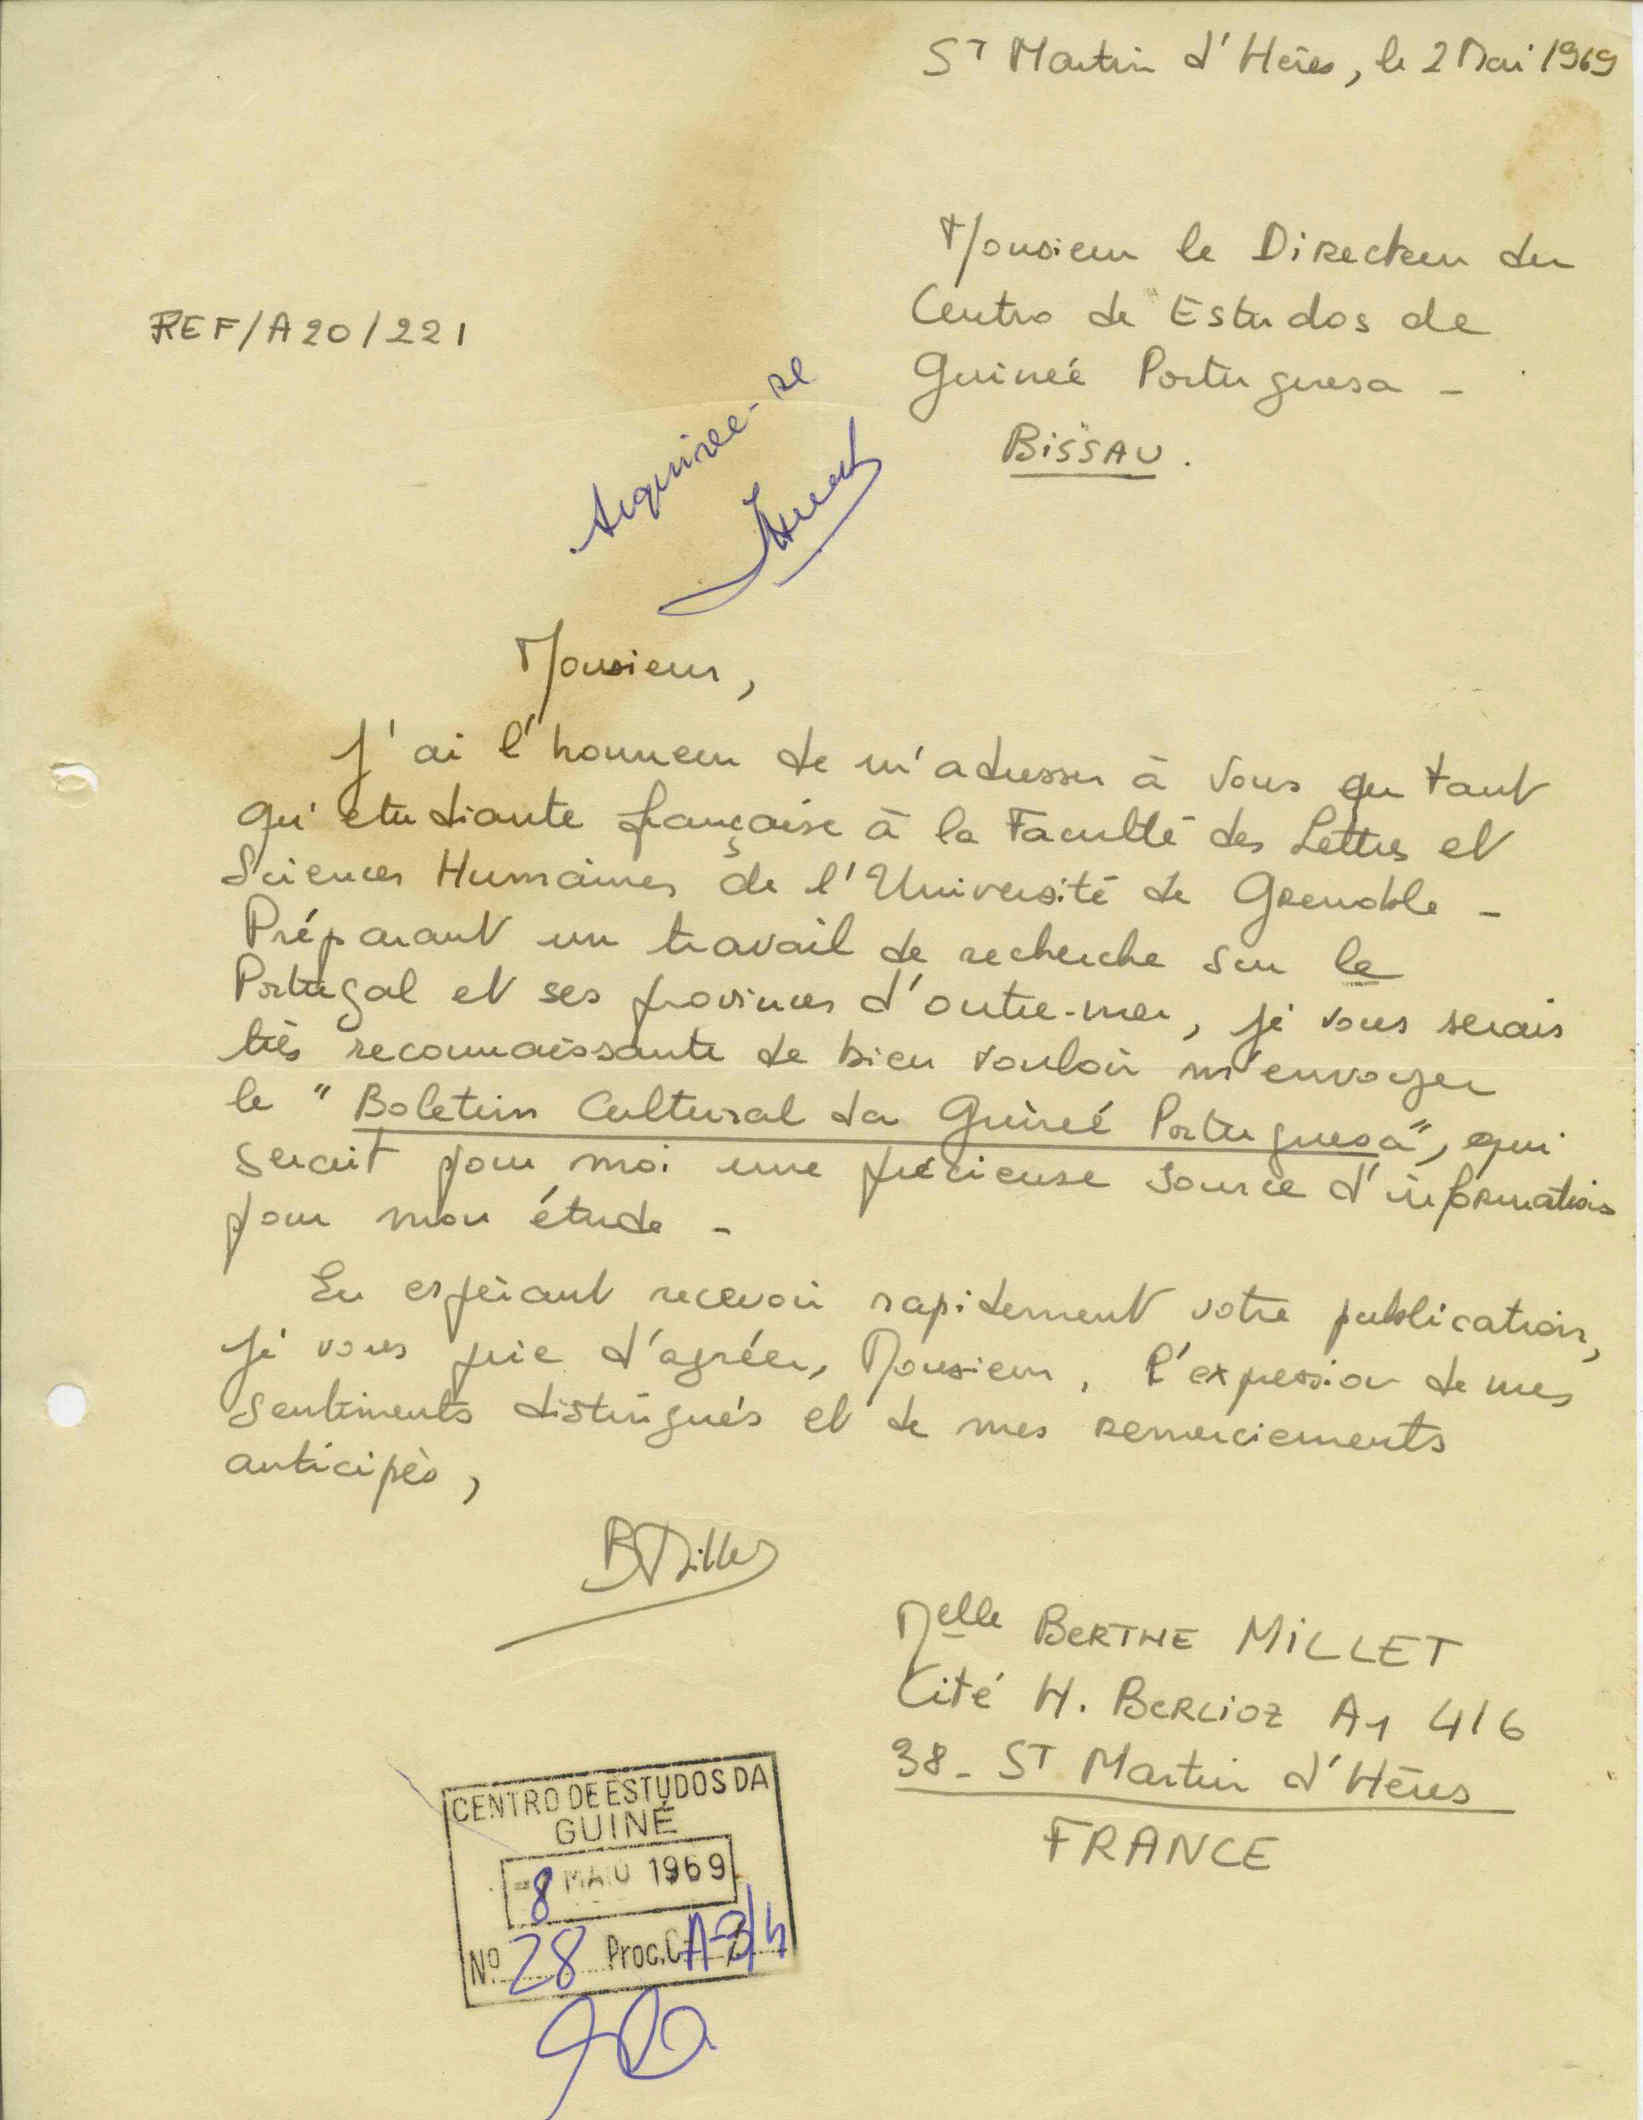 St Martin d'Hères, le 2 Mai 1969
Monsieur le Directeur du
Centro de Estudos de
Guineé Portuguesa -
BISSAU.
REF/A20/221
Monsieur,
J'ai l'honneur de m'adresser à vous en tant
qu'etudiante française à la Faculté des Lettres et
Sciences Humaines de l'Université de Grenoble -
Préparant un travail de recherche sur le
Portugal et ses provinces d'outre-mer, je vous serais
très reconnaissante de bien vouloir m'envoyer
le "Boletim Cultural da Guineé Portuguesa", qui
serait pour moi une précieuse source d'information
pour mon étude -
En espérant recevoir rapidement votre publication,
je vous prie d'agréer, Monsieur, l'expression de mes
sentiments distingués et de mes remerciements
anticipés,
BMillet
Melle BERTHE MILLET
Cité H. BERLIOZ A1 416
38 - ST Martin d'Hères
FRANCE
CENTRO DE ESTUDOS DA
GUINÉ
-8 MAIO 1969
Nº 28 Proc. A-3/4